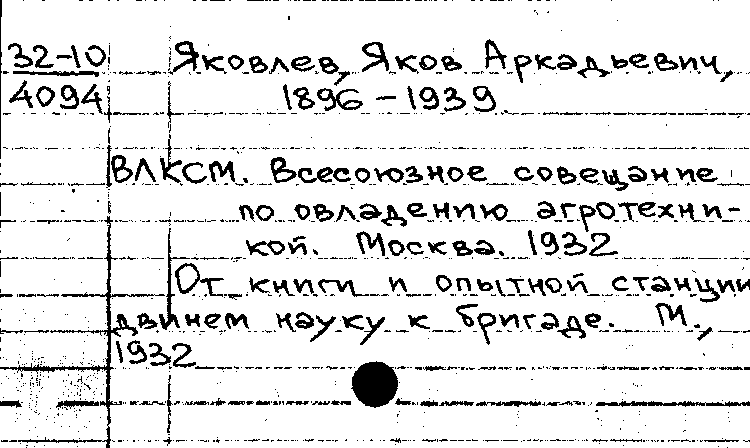 32-10 Яковлев, Яков Аркадьевич,
4094 1896 – 1939.
ВЛКСМ. Всесоюзное совещание
по овладению агротехни-
кой. Москва. 1932
От книги и опытной станции
двинем науку к бригаде. М.,
1932